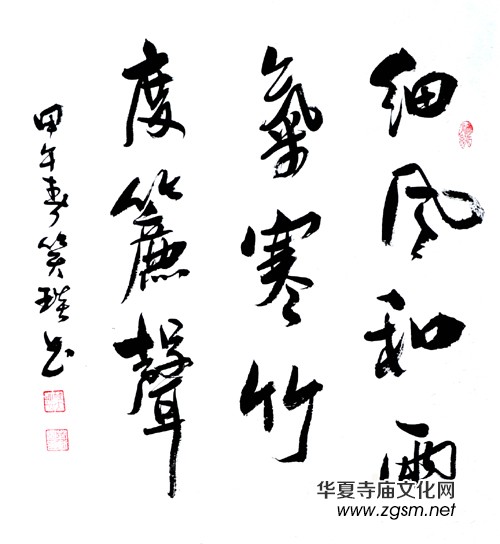 細风和雨
氣寒竹
度簾聲
甲午春笑书
华夏寺庙文化网
www.zgsm.net